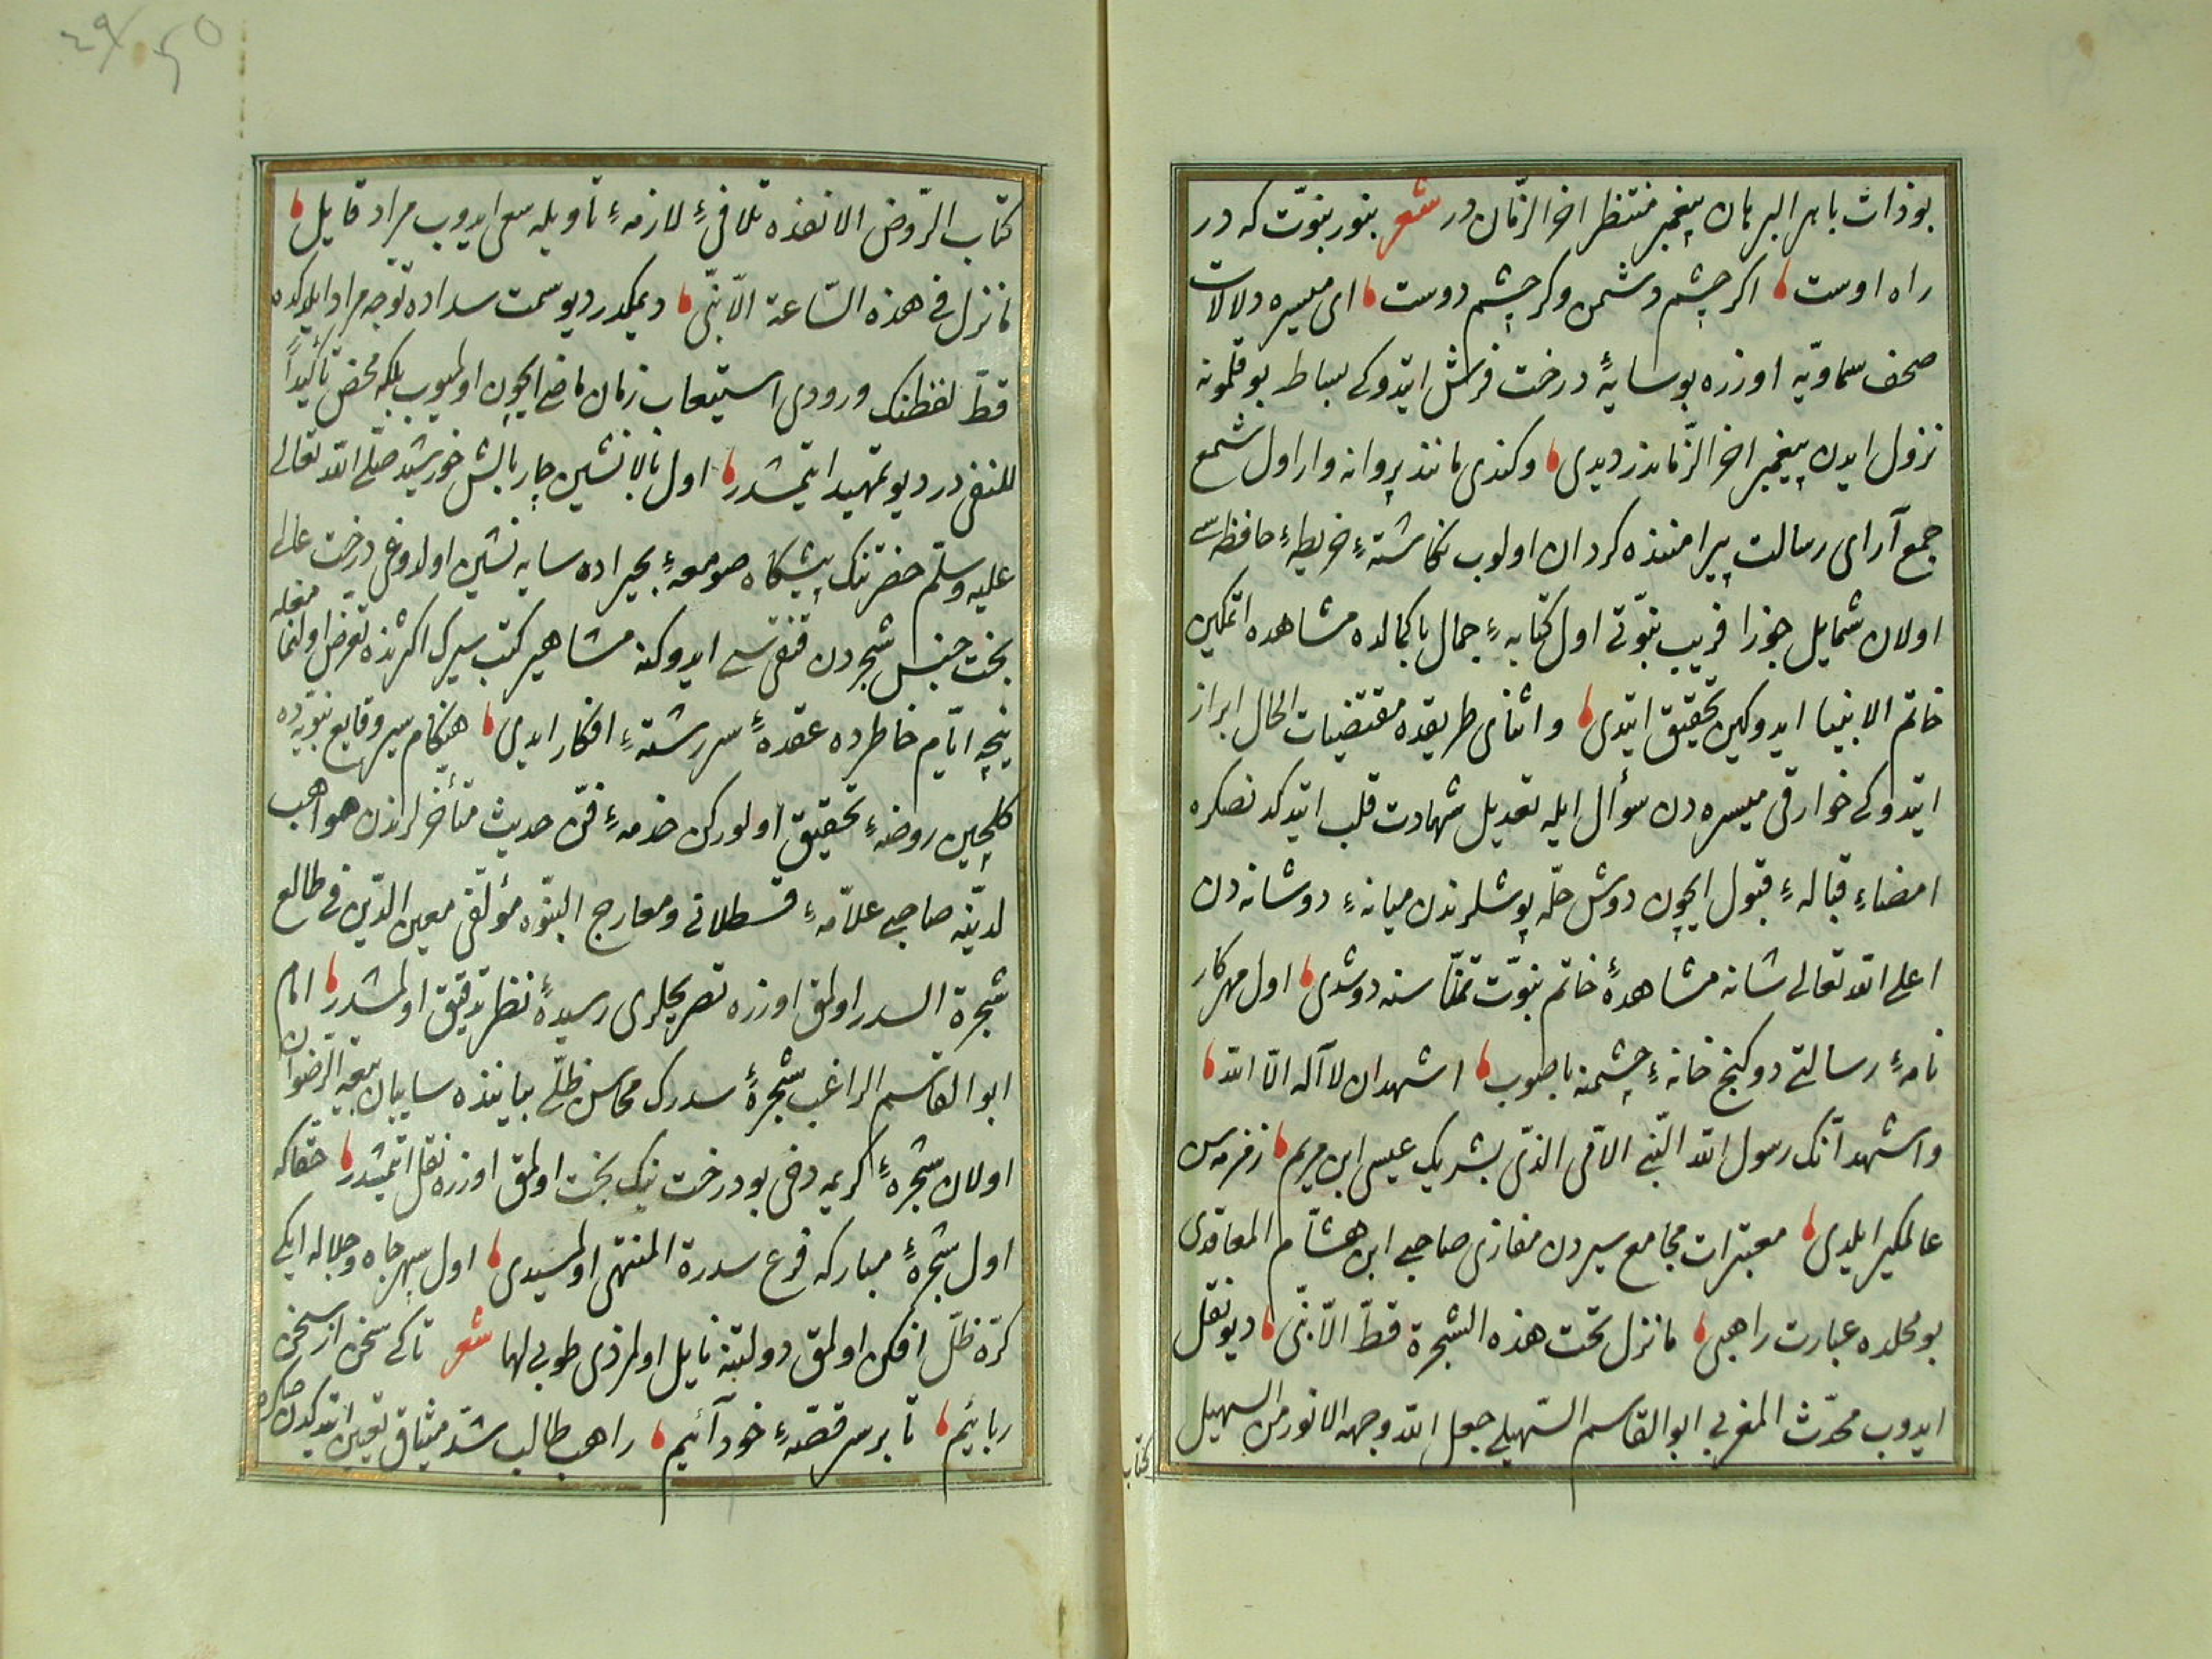 بو ذات باهر البرهان پیغمبر منتظر اخر الزّمان در شعر بنور بنوّت که در
راه اوست اکر چشم دشمن وکر چشم دوست ای میسره دلالات
صحف سماویّه اوزره بو سایهٔ درخت فرش ایتدوکی بساط بوقلمونه
نزول ایدن پیغمبر اخر الزّماندر دیدی وکندی مانند پروانه وار اول شمع
جمع آرای رسالت پیرامننده کردان اولوب نکاشتهٔ خریطهٔ حافظه سی
اولان شمایل جوزا فریب نبوّتی اول کتابهٔ جمال با کمالده مشاهده ایتمکین
خاتم الانبیا ایدوکین تحقیق ایتدی واثنای طریقده مقتضیات الحال ابراز
ایتدوکی خوارقی میسره دن سؤال ایله تعدیل شهادت قلب ایتدکدنصکره
امضاء قبالهٔ قبول ایچون دوش حلّه پوشلرندن میانهٔ دوشانه دن
اعلی الله تعالی شانه مشاهدهٔ خاتم نبوّت تمنّاسنه دوشدی اول مهرکار
نامهٔ رسالتی دو کنج خانهٔ چشمنه باصوب اشهد ان لا آله الاّ الله
واشهد انّک رسول الله النّبی الاّمی الذّی بشر بک عیسی ابن مریم زفرمه سن
عالمکیر ایلدی معتبرات مجامع سیردن مغازی صاحبی ابن هشام المعاقدی
بو محلده عبارت راهبی مانزل تحت هذه الشجرة قطّ الاّ نبّی دیو نقل
ایدوب محدّث المغربی ابو القاسم السّهیلی جعل الله وجهه الانور من السهیل
کتاب
کتاب الرّوض الانفنده تلافیٔ لازمهٔ تأویله سعی ایدوب مراد قایل
مانزل فی هذه السّاعة الاّ نبّی دیمکدر دیو سمت سداده توجه مراد ایلدکده
قطّ لفظنک ورودی استیعاب زمان ماضی ایچون اولمیوب بلکه محض تأکیداً
للنفی در دیو تمهید ایتمشدر اول بالانشین چار بالش خورشید صلّی الله تعالی
علیه وسلّم حضرتنک پیشکاه صومعهٔ بحیراده سایه نشین اولدوغی درخت عالی
بخت جنس شجردن قنقیسی ایدوکنه مشاهیر کتب سیرک اکثرنده تعرض اولنمامغله
نیچه ایّام خاطرده عقدهٔ سررشتهٔ افکار ایدی هنکام سیر وقایع نبویّه ده
کلچین روضهٔ تحقیق اولورکن خدمهٔ فنّ حدیث متأخرلرندن مواهب
لدنّیه صاحبی علاّمهٔ قسطلانی ومعارج النبّوه مؤلّفی معین الدّین فی طالع
شجرة السدر اولمق اوزره تصریحلری رسیدهٔ نظر تدقیق اولمشدر امام
ابو القاسم الراغب شجرهٔ سدرک محاسن ظلّی بیاننده سایبان بیعة الرّضوان
اولان شجرهٔ کریمه دخی بو درخت نیک بخت اولمق اوزره نقل ایتمشدر حقاکه
اول شجرهٔ مبارکه فرع سدرة المنتهی اولمسیدی اول سپهر جاه وجلاله ایکی
کرّه ظلّ افکن اولمق دولتنه نایل اولمزدی طوبی لها شعر تاکی سخن از سخن
ربائیم تا بر سر قصّهٔ خود آئیم راهب طالب شدّ میثاق تعیین ایتدکدن صکره